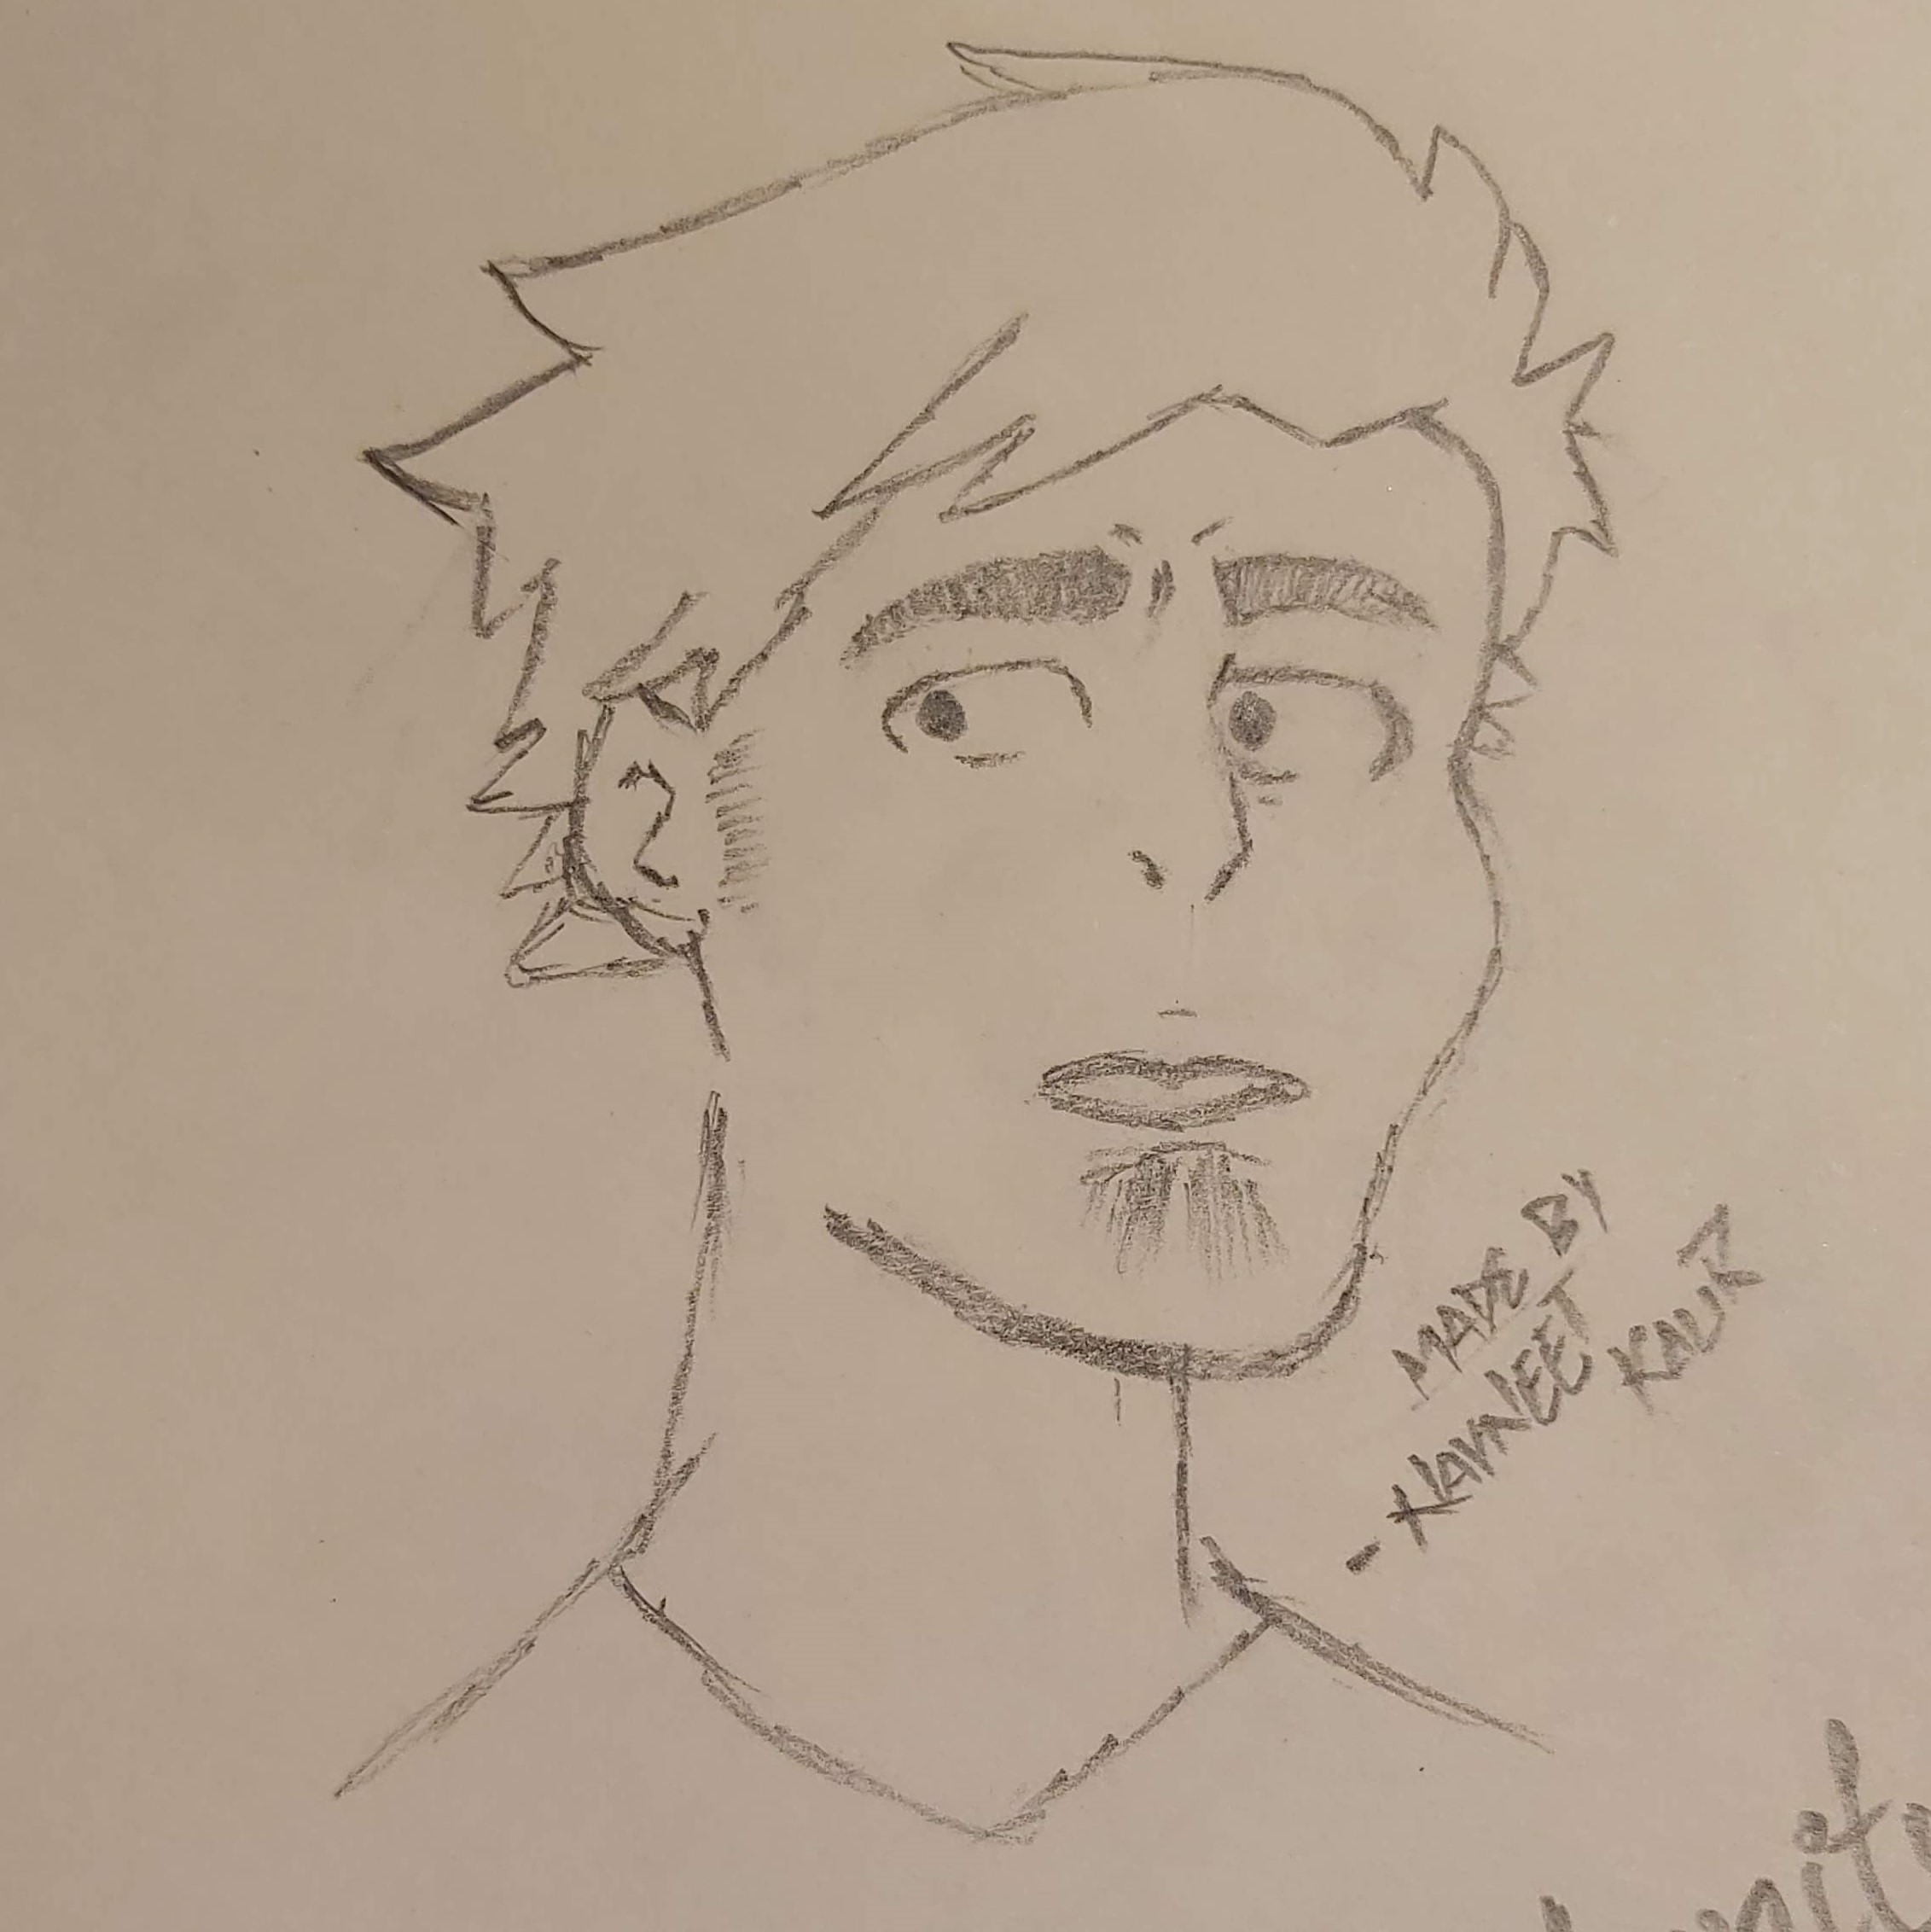 MADE BY
- NAVNEET
KAUR